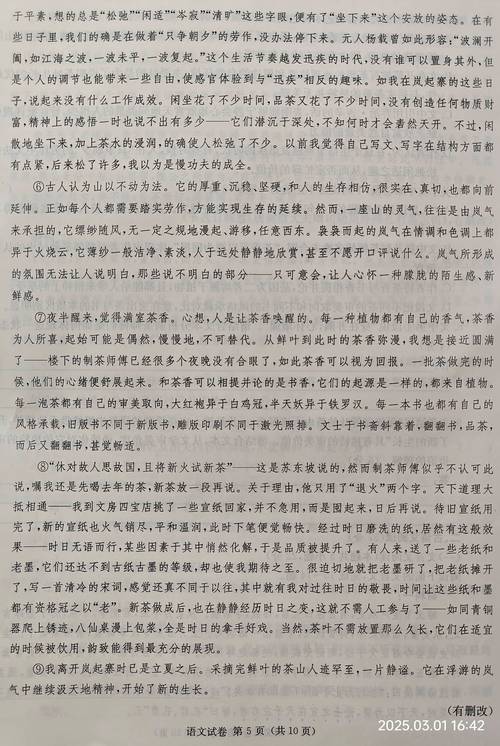 于平素，想的总是“松弛”“闲适”“岑寂”“清旷”这些字眼，便有了“坐下来”这个安放的姿态。在有
些日子里，我们的确是在做着“只争朝夕”的劳作，没办法停下来。元人杨载曾如此形容：“波澜开
阖，如江海之波，一波未平，一波复起。”这个生活节奏越发迅疾的时代，没有谁可以置身其外，但
是个人的调节也能带来一些自由，使感官体验到与“迅疾”相反的趣味。如我在岚起寨的这些日
子，说起来没有什么工作成效。闲坐花了不少时间，品茶又花了不少时间，没有创造任何物质财
富，精神上的感悟一时也说不出有多少——它们潜沉于深处，不知何时才会砉然天开。不过，闲
散地坐下来，加上茶水的浸润，的确使人松弛了不少。以前我觉得自己写文、写字在结构方面都
有点紧，后来松了许多，我以为是慢功夫的成全。
⑥古人认为山以不动为法。它的厚重、沉稳、坚硬，和人的生存相仿，很实在、真切，也都向前
延伸。正如每个人都需要踏实劳作，方能实现生存的延续。然而，一座山的灵气，往往是由岚气
来承担的，它缥缈随风，无一定之规地漫起、游移，任意西东。袅袅而起的岚气在情调和色调上都
异于火烧云，它薄纱一般洁净、素淡，人于远处静静地欣赏，甚至不愿开口评说什么。岚气所形成
的氛围无法让人说明白，那些说不明白的部分——只可意会，让人心怀一种朦胧的陌生感、新
鲜感。
⑦夜半醒来，觉得满室茶香。心想，人是让茶香唤醒的。每一种植物都有自己的香气，茶香
为人所喜，起始可能是偶然，慢慢地，不可替代。从鲜叶到此时的茶香弥漫，我想是接近圆满
了——楼下的制茶师傅已经很多个夜晚没有合眼了，如此茶香可以视为回报。一批茶做完的时
候，他们的心绪便舒展起来。和茶香可以相提并论的是书香，它们的起源是一样的，都来自植物。
每一泡茶都有自己的审美取向，大红袍异于白鸡冠，半天妖异于铁罗汉。每一本书也都有自己的
风格承载，旧版书不同于新版书，雕版印刷不同于激光照排。文士于书斋斜靠着，翻翻书，品茶，
而后又翻翻书，甚觉畅适。
⑧“休对故人思故国，且将新火试新茶”——这是苏东坡说的，然而制茶师傅似乎不认可此
说，嘱我还是先喝去年的茶，新茶放一段再说。关于理由，他只用了“退火”两个字。天下道理大
抵相通——我到文房四宝店挑了一些宣纸回家，并不急用，而是囤起来，日后再说。待旧宣纸用
完了，新的宣纸也火气销尽，平和温润，此时下笔便觉畅快。经过时日磨洗的纸，居然有这般效
果——时日无语而行，某些因素于其中悄然化解，于是品质被提升了。有人来，送了一些老纸和
老墨，它们还达不到古纸古墨的等级，却也使我期待之至。很迫切地就把老墨研了，把老纸摊开
了，写一首清冷的宋词，感觉还真不同于以往，其中就有我对过往时日的敬畏，时间让这些纸和墨
都有资格冠之以“老”。新茶做成后，也在静静经历时日之变，这就不需人工参与了——如同青铜
器爬上锈迹，八仙桌漫上包浆，全是时日的拿手好戏。当然，茶叶不需放置那么久长，它们在适宜
的时候被饮用，韵致能得到最充分的展现。
⑨我离开岚起寨时已是立夏之后。采摘完鲜叶的茶山人迹罕至，一片静谧。它在浮游的岚
气中继续汲天地精神，开始了新的生长。
（有删改）
语文试卷 第 5 页（共 10 页）
2025.03.01 16:42